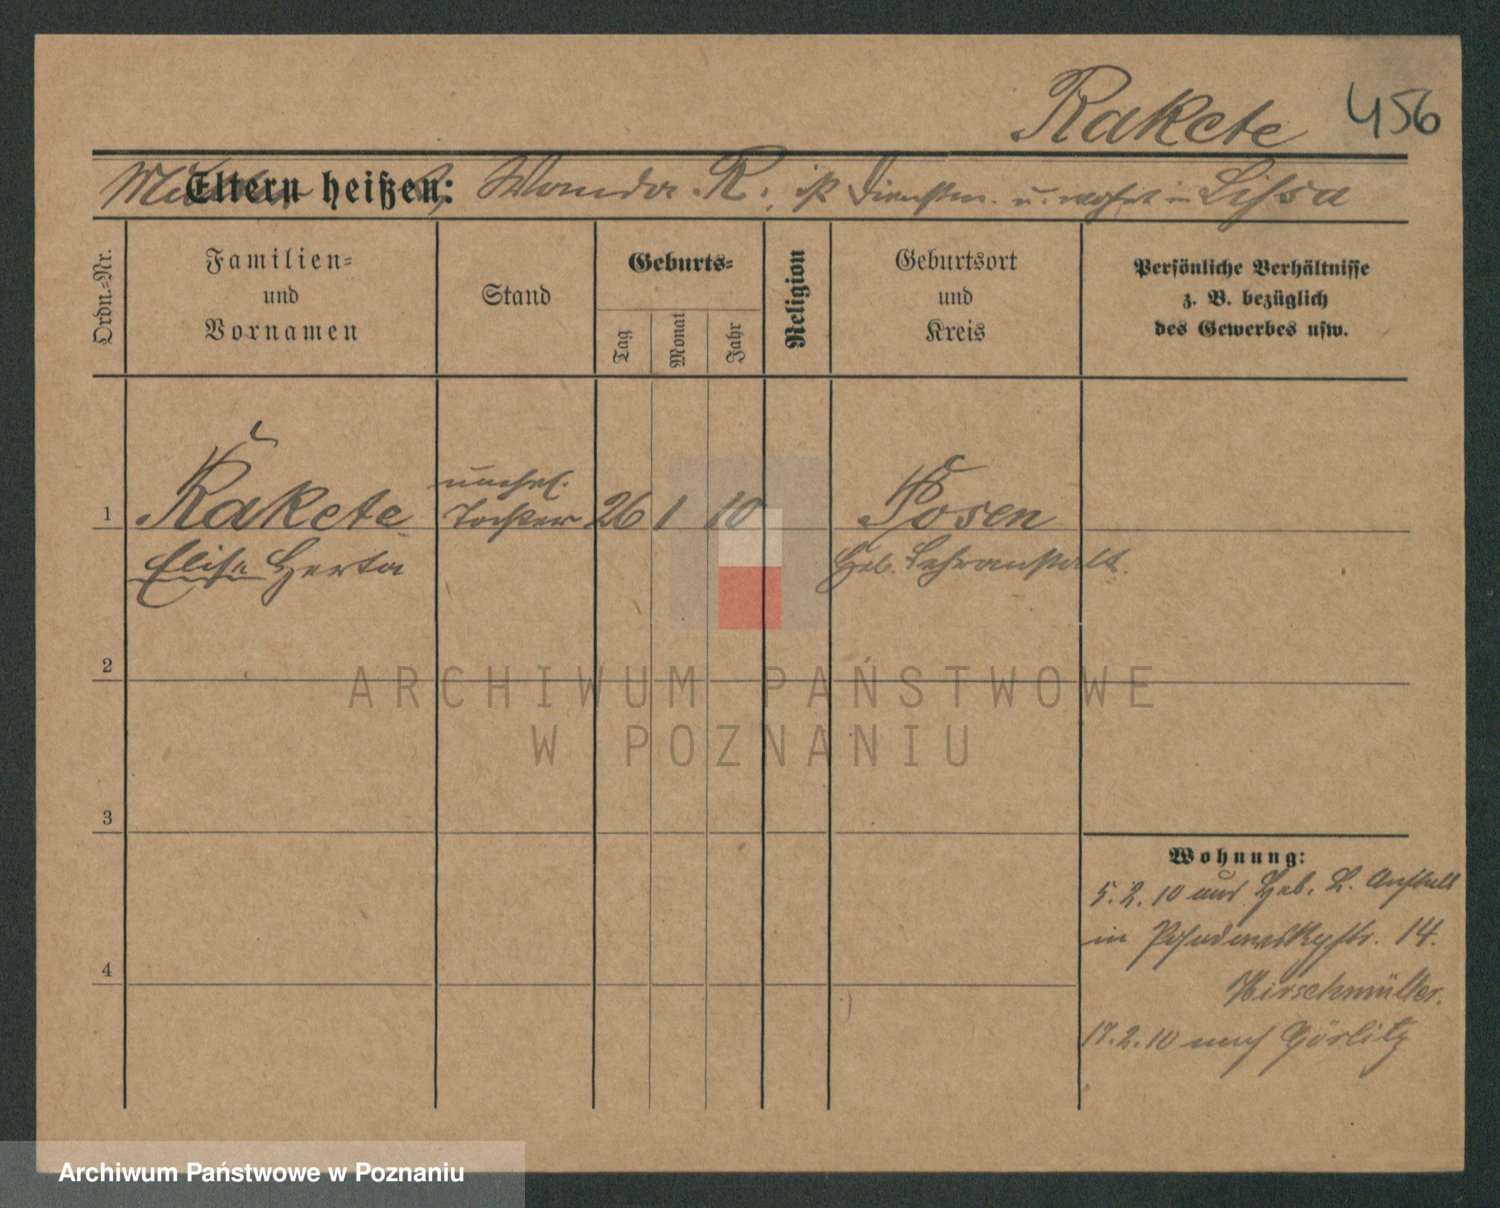 Rakete 456
Mutter
Eltern heißen: Wanda R. ist Dienstm. u. wohnt in Lissa
Ordn.-Nr.
Familien-
und
Vornamen
Stand
Geburts-
Tag
Monat
Jahr
Religion
Geburtsort
und
Kreis
Persönliche Verhältnisse
z. B. bezüglich
des Gewerbes usw.
1 Rakete unehel. Tochter 26 1 10 Posen
Elise Herta Heb. Lehranstalt.
2
3
4
Wohnung:
5.2.10 aus Heb. L. Anstalt
in 14.
Hirschmüller.
17.2.10 nach Görlitz
ARCHIWUM PAŃSTWOWE
W POZNANIU
Archiwum Państwowe w Poznaniu